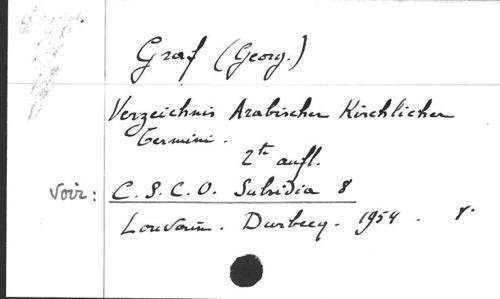 Graf (Georg.)
Verzeichnis Arabischer Kirchlicher
Termini.
2te aufl.
Voir: C.S.C.O. Subsidia 8
Louvain. Durbecq. 1954. 8°